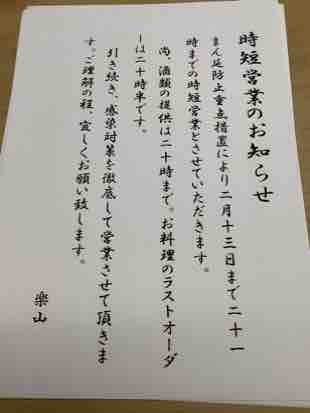 時短営業のお知らせ
まん延防止重点措置により二月十三日まで二十一
時までの時短営業とさせていただきます。
尚、酒類の提供は二十時まで。お料理のラストオーダ
ーは二十時半です。
引き続き、感染対策を徹底して営業させて頂きま
す。ご理解の程、宜しくお願い致します。
楽山